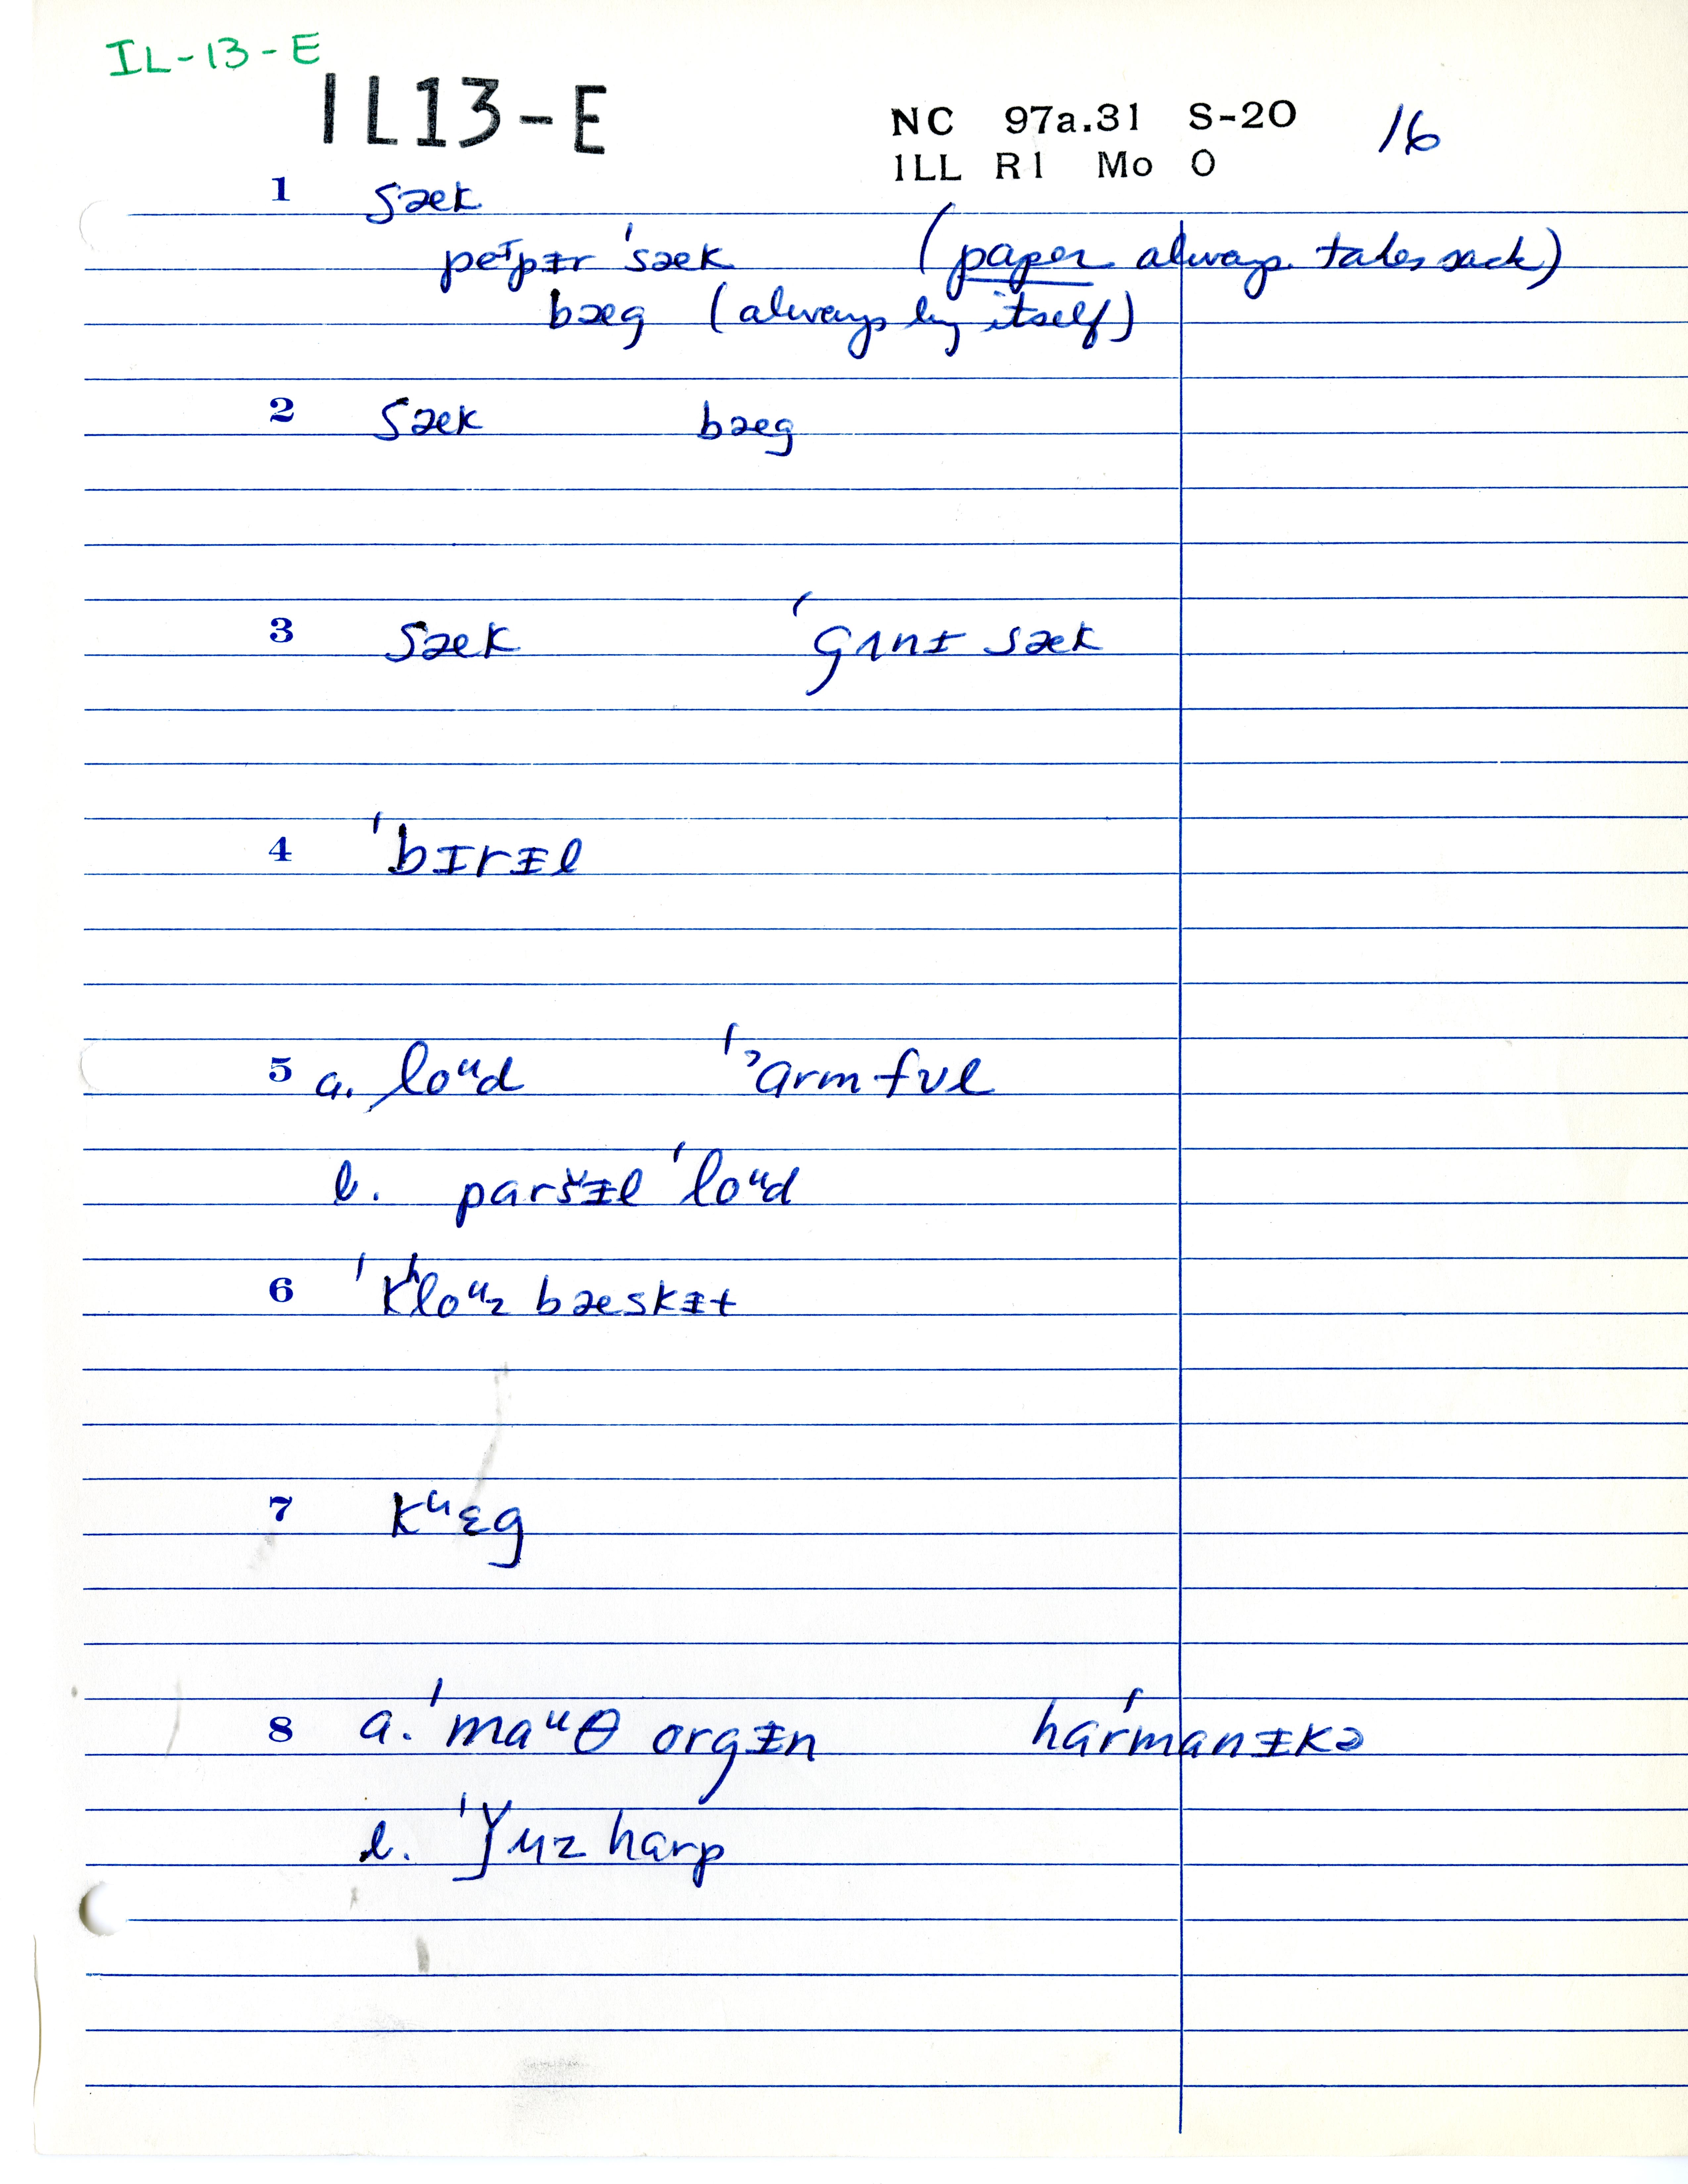 IL-13-E
IL13-E
NC 97a.31 S-20 16
ILL R1 Mo O
1 sæk
peᴵpᵻr 'sæk (paper always takes sack)
bæg (always by itself)
2 sæk bæg
3 sæk 'gʌnᵻ sæk
4 'bɪrᵻl
5 a. loᵘd 'ɔarmfʊl
b. paršᵻl 'loᵘd
6 'kʰloᵘz bæskᵻt
7 kᵘɛg
8 a. 'maᵘθ orgᵻn har'manᵻkə
b. 'ǰuz harp